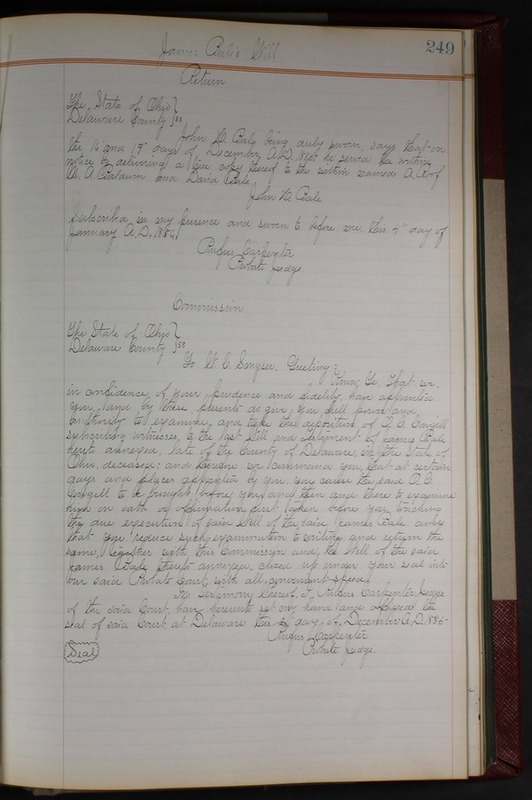 249
James Bale's Will
Return
The State of Ohio }
Delaware County } ss
John H. Bale being duly sworn, says that on
the 16 and 19" days of December A.D. 1885 he served the within
notice by delivering a true copy thereof to the within named
A. Baldwin and David Bale
John H. Bale
Subscribed in my presence and sworn to before me this 4" day of
January A.D. 1886
Rufus Carpenter
Probate Judge
Commission
The State of Ohio }
Delaware County } ss
To W. C. Smyser, Greeting:
Know Ye, that we
in confidence of your prudence and fidelity, have appointed
you, and by these presents do give you full power and
authority to examine, and take the deposition of Cowgill
subscribing witnesses, to the last Will and Testament of James Bale
hereto annexed, late of the County of Delaware, in the State of
Ohio, deceased; and therefore we command you, that at certain
days and places appointed by you, you cause the said
Cowgill to be brought before you, and then and there to examine
on oath or affirmation first taken before you, touching
the due execution of said Will of the said James Bale and
that you reduce such examination to writing, and return the
same, together with this Commission and the Will of the said
James Bale thereto annexed, closed up under your seal into
our said Probate Court, with all convenient speed.
In Testimony Whereof, I, Rufus Carpenter, Judge
of the said Court, have hereunto set my hand and affixed the
seal of said Court, at Delaware this day of December A.D. 1885
Rufus Carpenter
Probate Judge
Seal